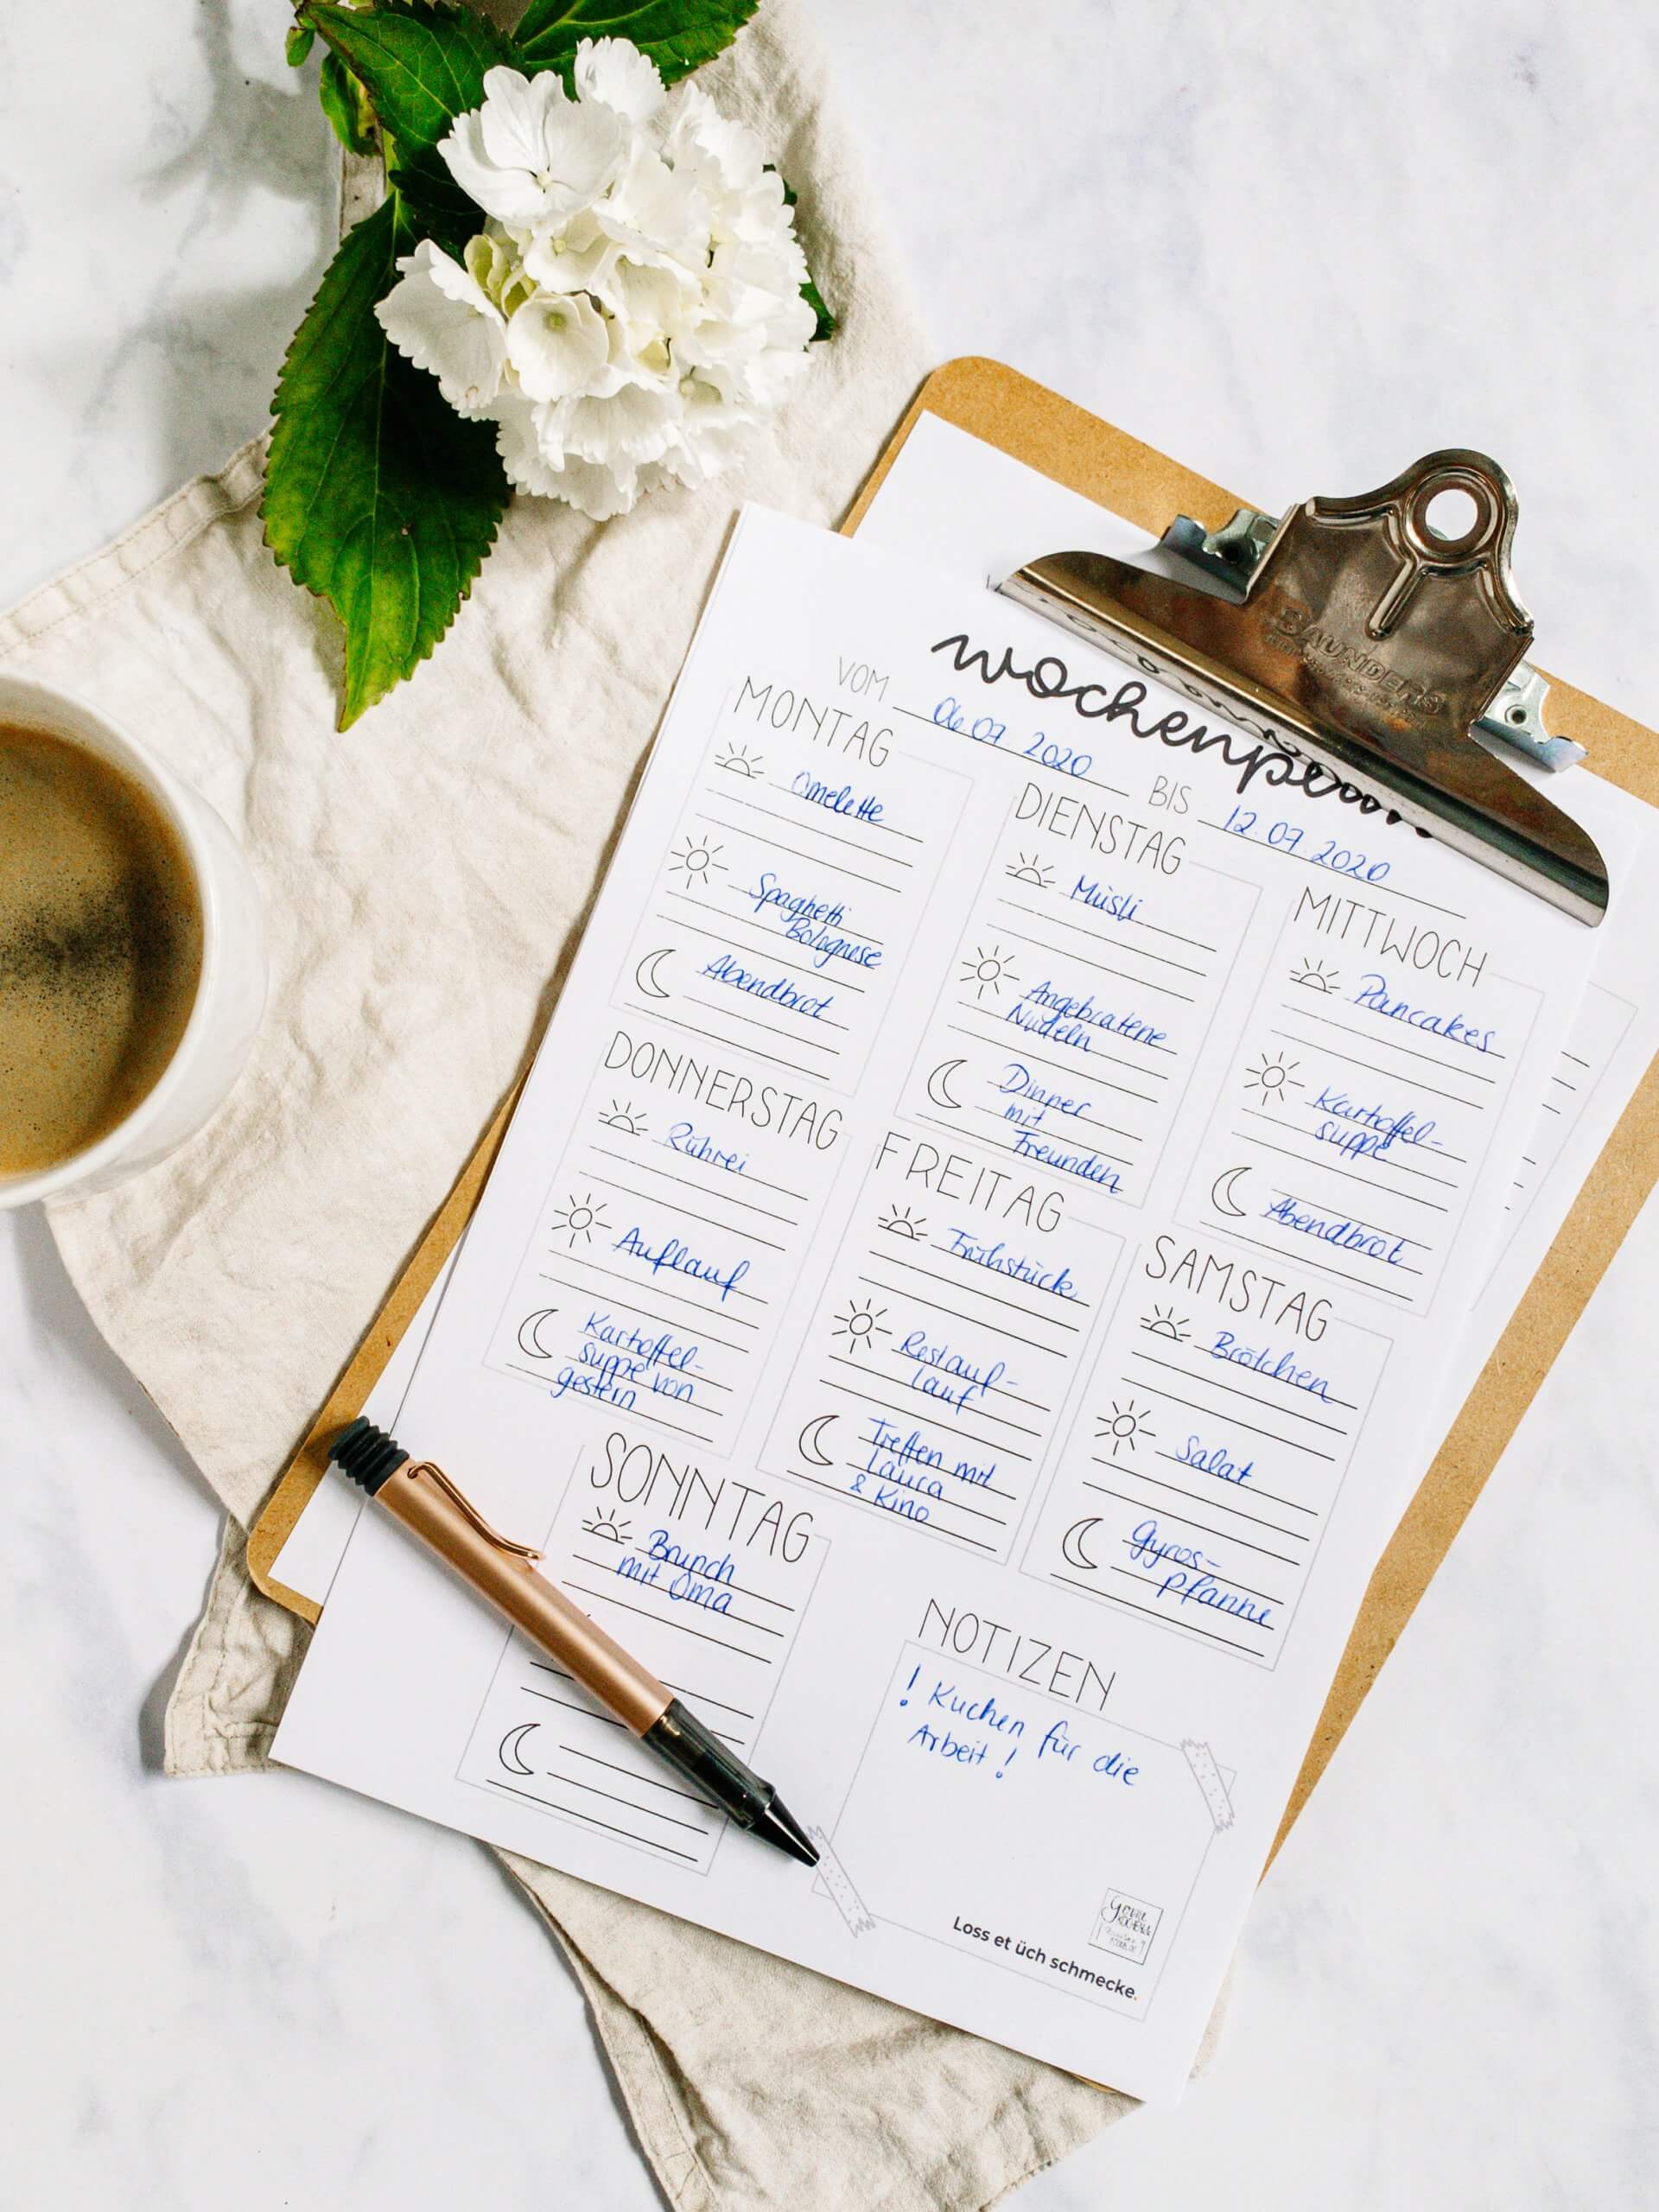 SAUNDERS
wochenplan
VOM 06.07.2020 BIS 12.07.2020
MONTAG
Omelette
Spaghetti
Bolognese
Abendbrot
DIENSTAG
Müsli
Angebratene
Nudeln
Dinner
mit
Freunden
MITTWOCH
Pancakes
Kartoffel-
suppe
Abendbrot
DONNERSTAG
Rührei
Auflauf
Kartoffel-
suppe von
gestern
FREITAG
Frühstück
Restauf-
lauf
Treffen mit
Laura
& Kino
SAMSTAG
Brötchen
Salat
Gyros-
pfanne
SONNTAG
Brunch
mit Oma
NOTIZEN
! Kuchen für die
Arbeit !
Loss et üch schmecke.